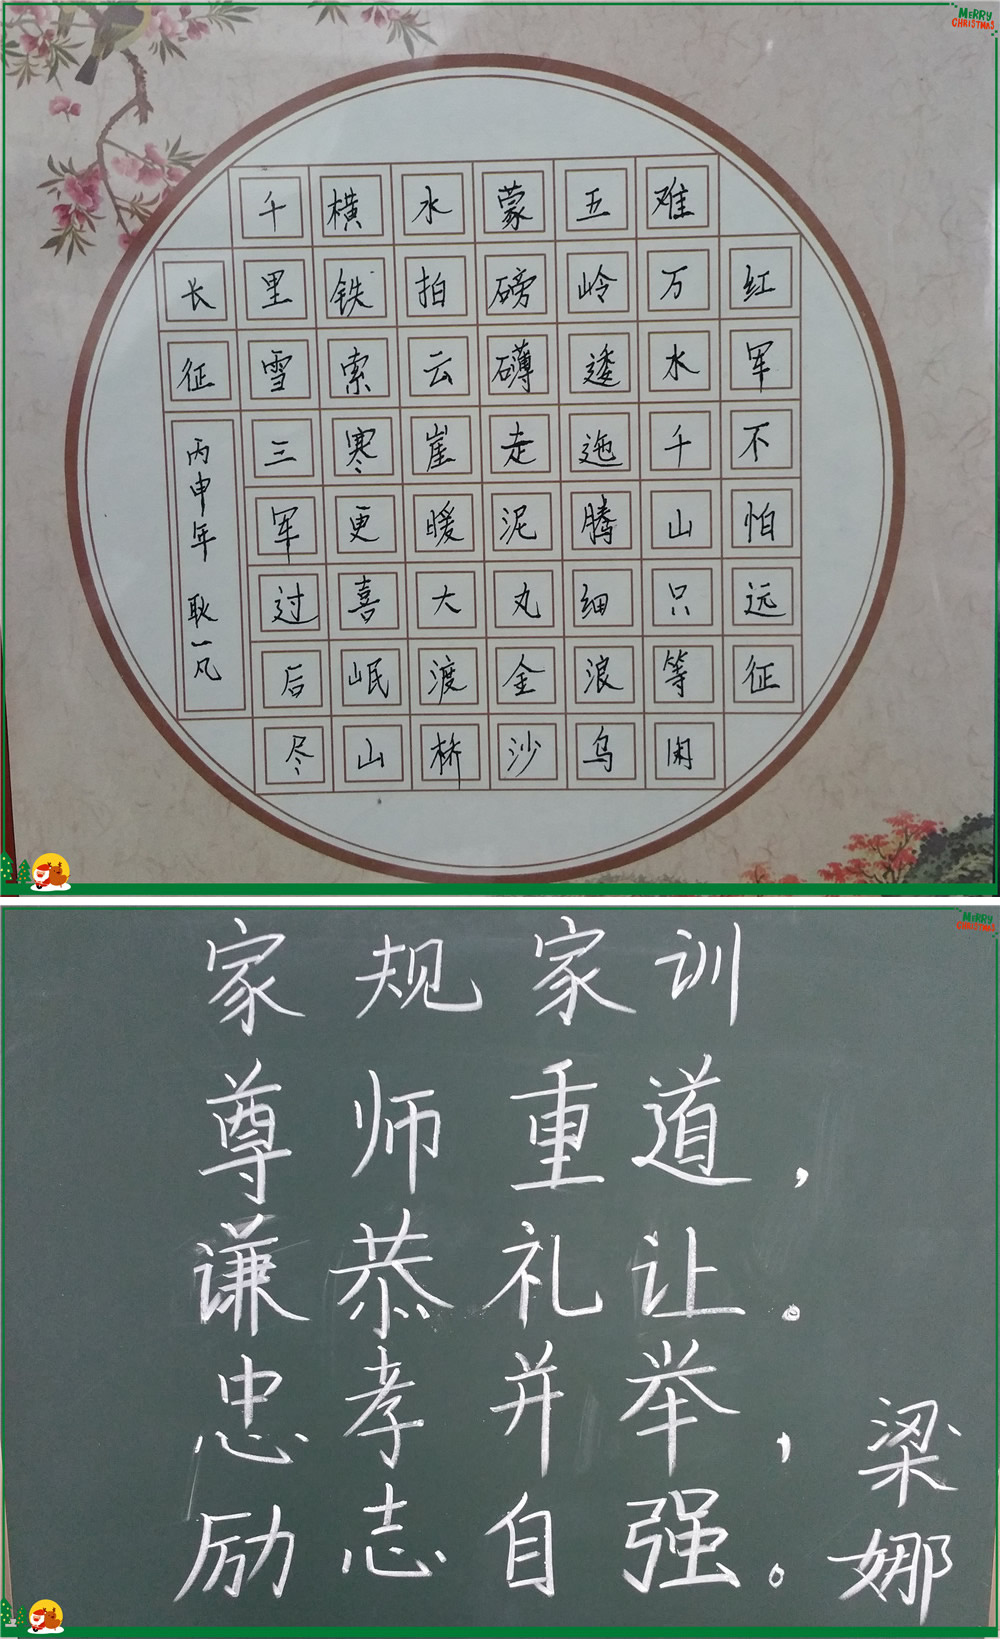 MERRY
CHRISTMAS
红军不怕远征
难万水千山只等闲
五岭逶迤腾细浪乌
蒙磅礴走泥丸金沙
水拍云崖暖大渡桥
横铁索寒更喜岷山
千里雪三军过后尽
长征
丙申年 耿一凡
MERRY
CHRISTMAS
家规家训
尊师重道，
谦恭礼让。
忠孝并举，
励志自强。
梁娜